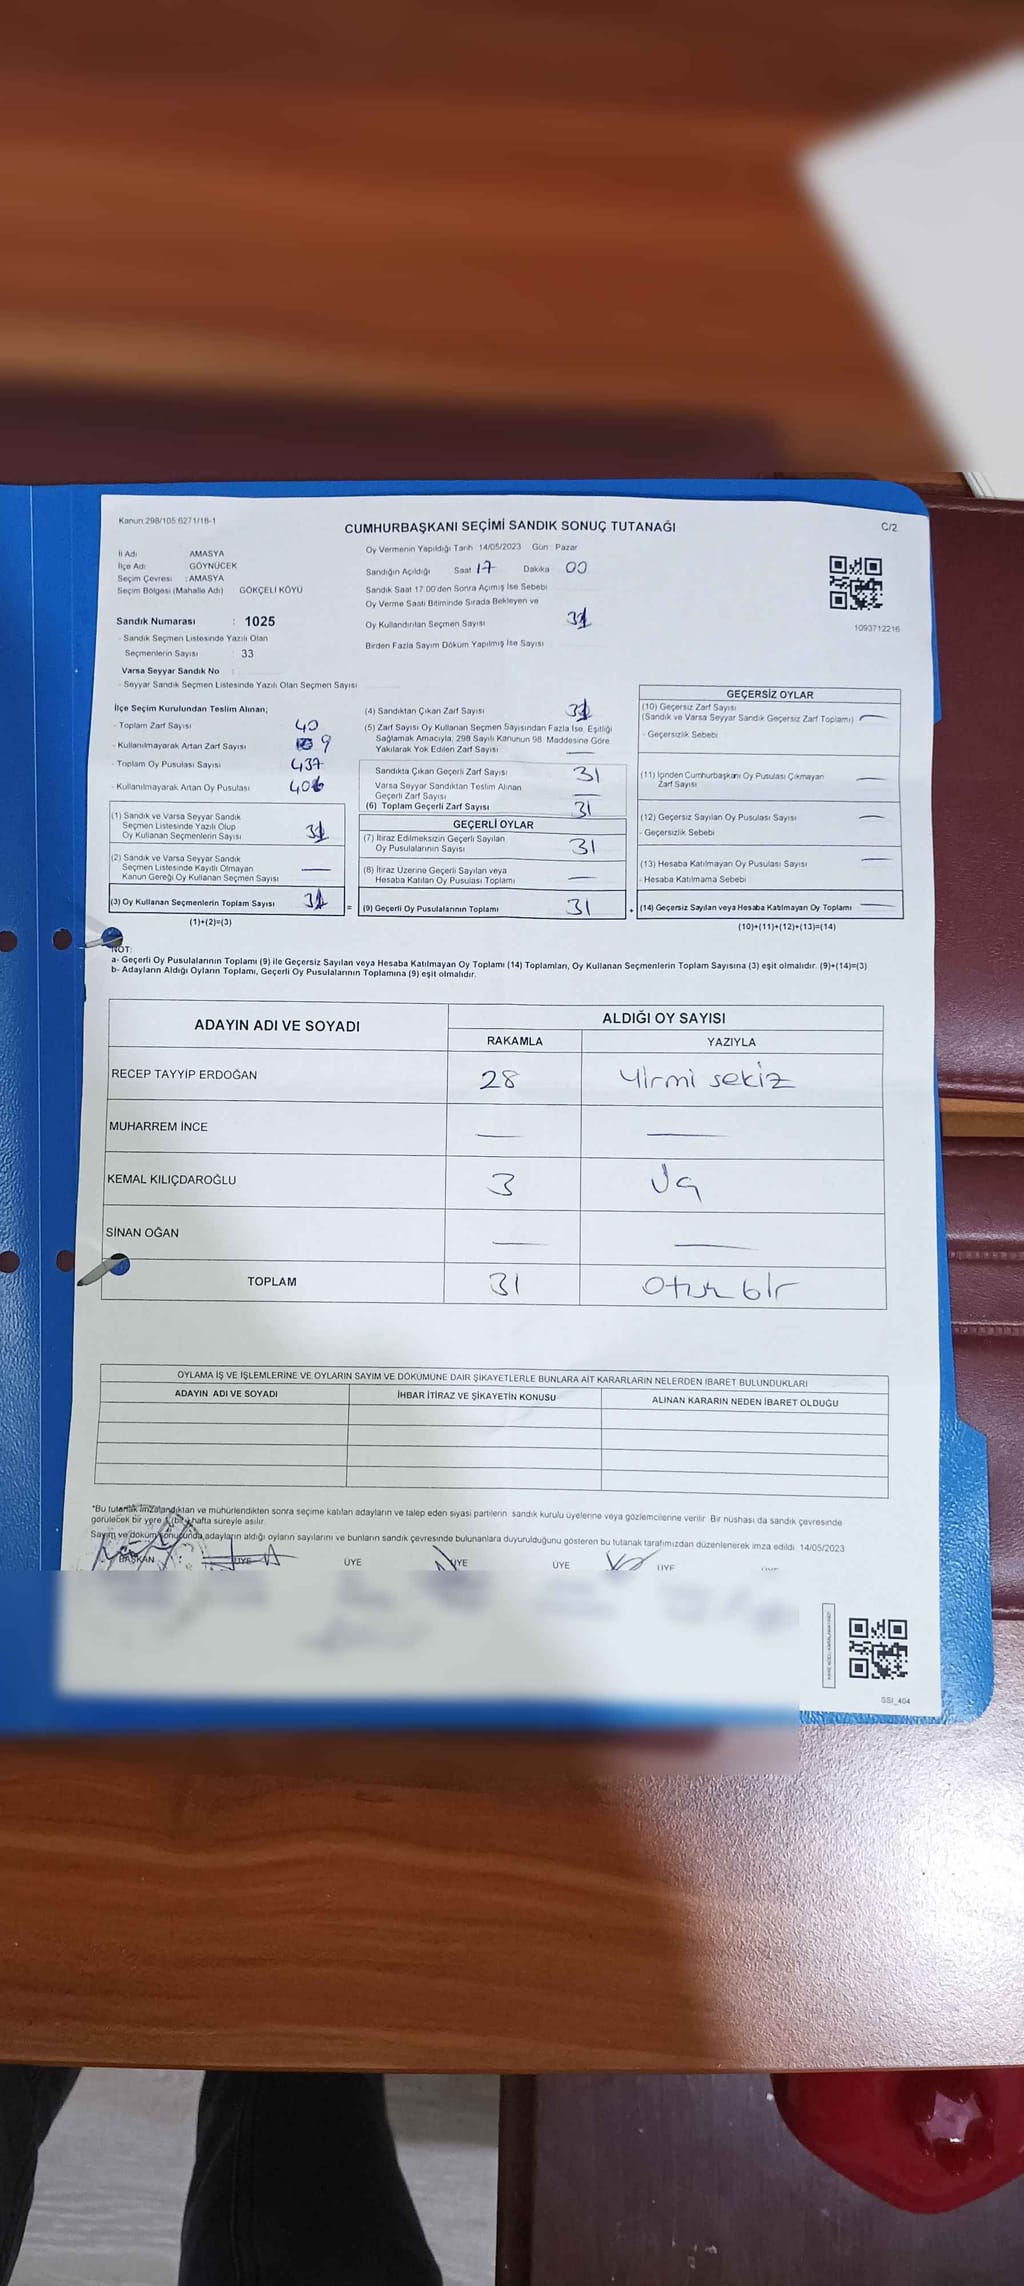 Kanun 298/105 6271/16-1
CUMHURBAŞKANI SEÇİMİ SANDIK SONUÇ TUTANAĞI
C/2
İl Adı AMASYA
İlçe Adı GÖYNÜCEK
Seçim Çevresi : AMASYA
Seçim Bölgesi (Mahalle Adı) GÖKÇELİ KÖYÜ
Sandık Numarası : 1025
- Sandık Seçmen Listesinde Yazılı Olan
Seçmenlerin Sayısı : 33
Varsa Seyyar Sandık No :
- Seyyar Sandık Seçmen Listesinde Yazılı Olan Seçmen Sayısı
Oy Vermenin Yapıldığı Tarih 14/05/2023 Gün Pazar
Sandığın Açıldığı Saat 17 Dakika 00
Sandık Saat 17 00'den Sonra Açımış İse Sebebi
Oy Verme Saati Bitiminde Sırada Bekleyen ve
Oy Kullandırılan Seçmen Sayısı 31
Birden Fazla Sayım Döküm Yapılmış İse Sayısı
1093712216
İlçe Seçim Kurulundan Teslim Alınan;
- Toplam Zarf Sayısı 40
- Kullanılmayarak Artan Zarf Sayısı 9
- Toplam Oy Pusulası Sayısı 437
- Kullanılmayarak Artan Oy Pusulası 406
(1) Sandık ve Varsa Seyyar Sandık
Seçmen Listesinde Yazılı Olup
Oy Kullanan Seçmenlerin Sayısı 31
(2) Sandık ve Varsa Seyyar Sandık
Seçmen Listesinde Kayıtlı Olmayan
Kanun Gereği Oy Kullanan Seçmen Sayısı —
(3) Oy Kullanan Seçmenlerin Toplam Sayısı 31 =
(1)+(2)=(3)
(4) Sandıktan Çıkan Zarf Sayısı 31
(5) Zarf Sayısı Oy Kullanan Seçmen Sayısından Fazla İse, Eşitliği
Sağlamak Amacıyla, 298 Sayılı Kanunun 98. Maddesine Göre
Yakılarak Yok Edilen Zarf Sayısı —
Sandıkta Çıkan Geçerli Zarf Sayısı 31
Varsa Seyyar Sandıktan Teslim Alınan
Geçerli Zarf Sayısı —
(6) Toplam Geçerli Zarf Sayısı 31
GEÇERLİ OYLAR
(7) İtiraz Edilmeksizin Geçerli Sayılan
Oy Pusulalarının Sayısı 31
(8) İtiraz Üzerine Geçerli Sayılan veya
Hesaba Katılan Oy Pusulası Toplamı —
(9) Geçerli Oy Pusulalarının Toplamı 31 +
GEÇERSİZ OYLAR
(10) Geçersiz Zarf Sayısı
(Sandık ve Varsa Seyyar Sandık Geçersiz Zarf Toplamı) —
- Geçersizlik Sebebi
(11) İçinden Cumhurbaşkanı Oy Pusulası Çıkmayan
Zarf Sayısı —
(12) Geçersiz Sayılan Oy Pusulası Sayısı —
- Geçersizlik Sebebi
(13) Hesaba Katılmayan Oy Pusulası Sayısı —
- Hesaba Katılmama Sebebi
(14) Geçersiz Sayılan veya Hesaba Katılmayan Oy Toplamı —
(10)+(11)+(12)+(13)=(14)
NOT:
a- Geçerli Oy Pusulalarının Toplamı (9) ile Geçersiz Sayılan veya Hesaba Katılmayan Oy Toplamı (14) Toplamları, Oy Kullanan Seçmenlerin Toplam Sayısına (3) eşit olmalıdır. (9)+(14)=(3)
b- Adayların Aldığı Oyların Toplamı, Geçerli Oy Pusulalarının Toplamına (9) eşit olmalıdır.
ADAYIN ADI VE SOYADI
ALDIĞI OY SAYISI
RAKAMLA YAZIYLA
RECEP TAYYİP ERDOĞAN 28 Yirmi sekiz
MUHARREM İNCE — —
KEMAL KILIÇDAROĞLU 3 Üç
SİNAN OĞAN — —
TOPLAM 31 Otuz bir
OYLAMA İŞ VE İŞLEMLERİNE VE OYLARIN SAYIM VE DÖKÜMÜNE DAİR ŞİKAYETLERLE BUNLARA AİT KARARLARIN NELERDEN İBARET BULUNDUKLARI
ADAYIN ADI VE SOYADI İHBAR İTİRAZ VE ŞİKAYETİN KONUSU ALINAN KARARIN NEDEN İBARET OLDUĞU
*Bu tutanak imzalandıktan ve mühürlendikten sonra seçime katılan adayların ve talep eden siyasi partilerin sandık kurulu üyelerine veya gözlemcilerine verilir. Bir nüshası da sandık çevresinde
görülecek bir yere 1 (bir) hafta süreyle asılır.
Sayım ve döküm sonucunda adayların aldığı oyların sayılarını ve bunların sandık çevresinde bulunanlara duyurulduğunu gösteren bu tutanak tarafımızdan düzenlenerek imza edildi. 14/05/2023
BAŞKAN ÜYE ÜYE ÜYE ÜYE ÜYE ÜYE
SSI_404